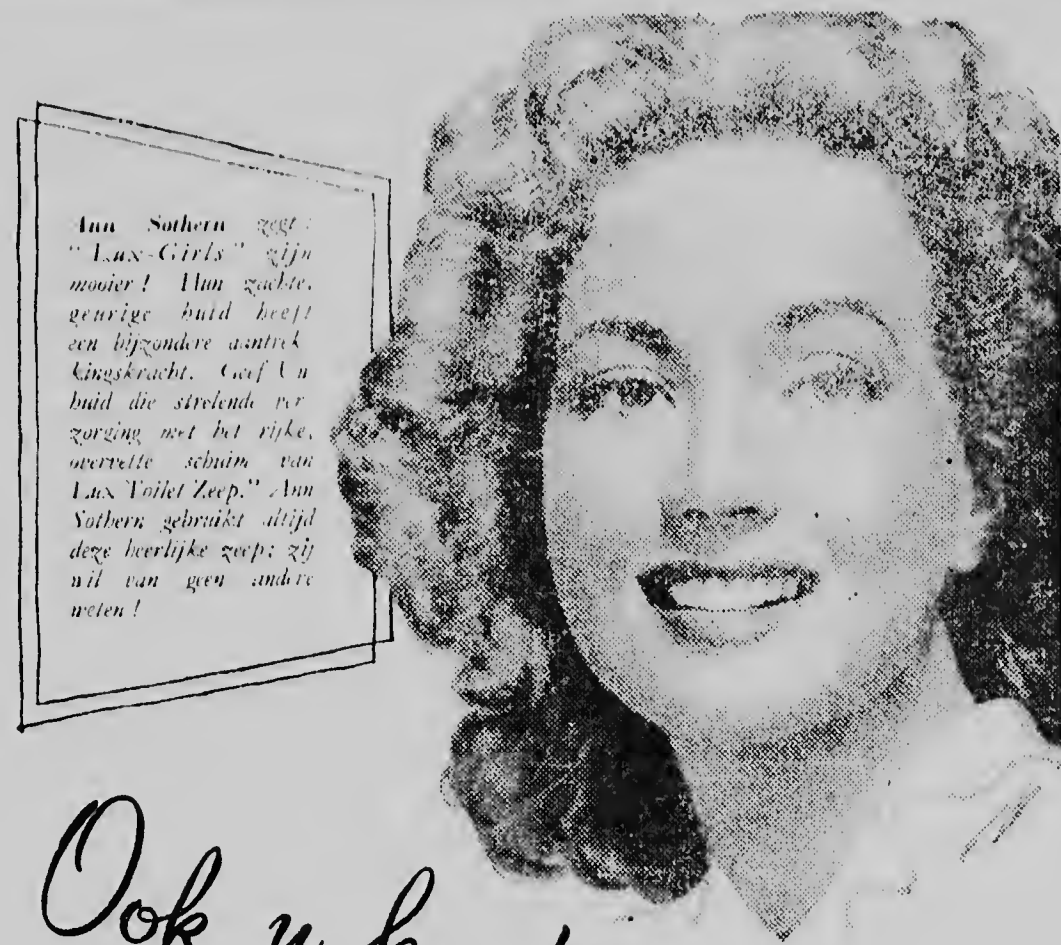 Ann Sothern zegt:
"Lux-Girls" zijn
mooier! Hun zachte,
geurige huid heeft
een bijzondere aantrek
kingskracht. Geef Uw
huid die strelende ver
zorging met het rijke,
overvette schuim van
Lux Toilet Zeep." Ann
Sothern gebruikt altijd
deze heerlijke zeep: zij
wil van geen andere
weten!
Ook u